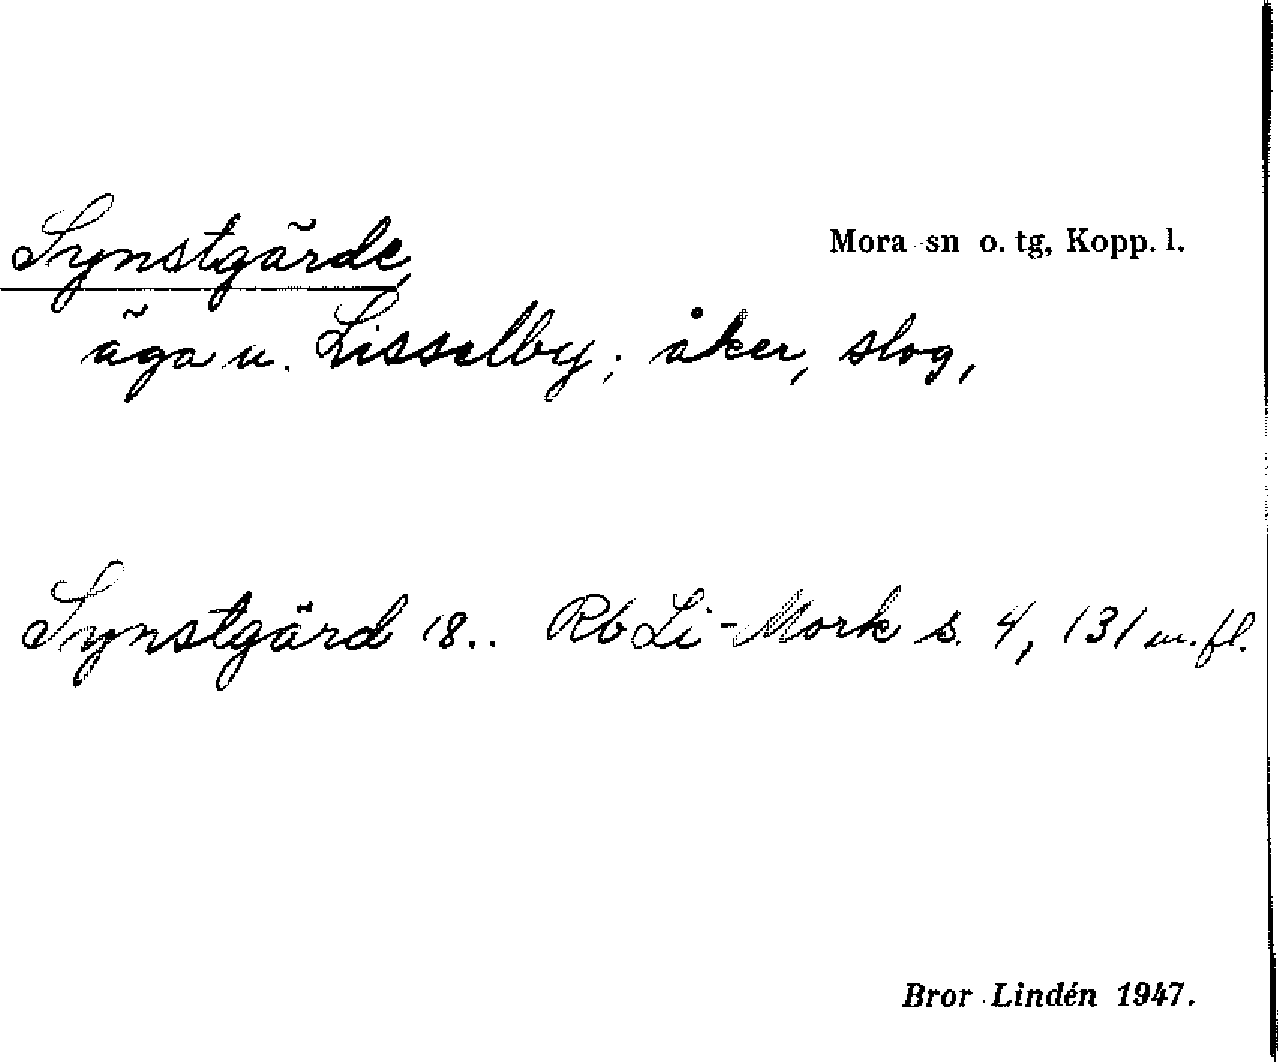 Synstgärde, Mora sn o. tg, Kopp. l.
äga u. Lisselby; åker, slog,
Synstgärd 18.. Rb Li-Mork s. 4, 131 m.fl.
Bror Lindén 1947.